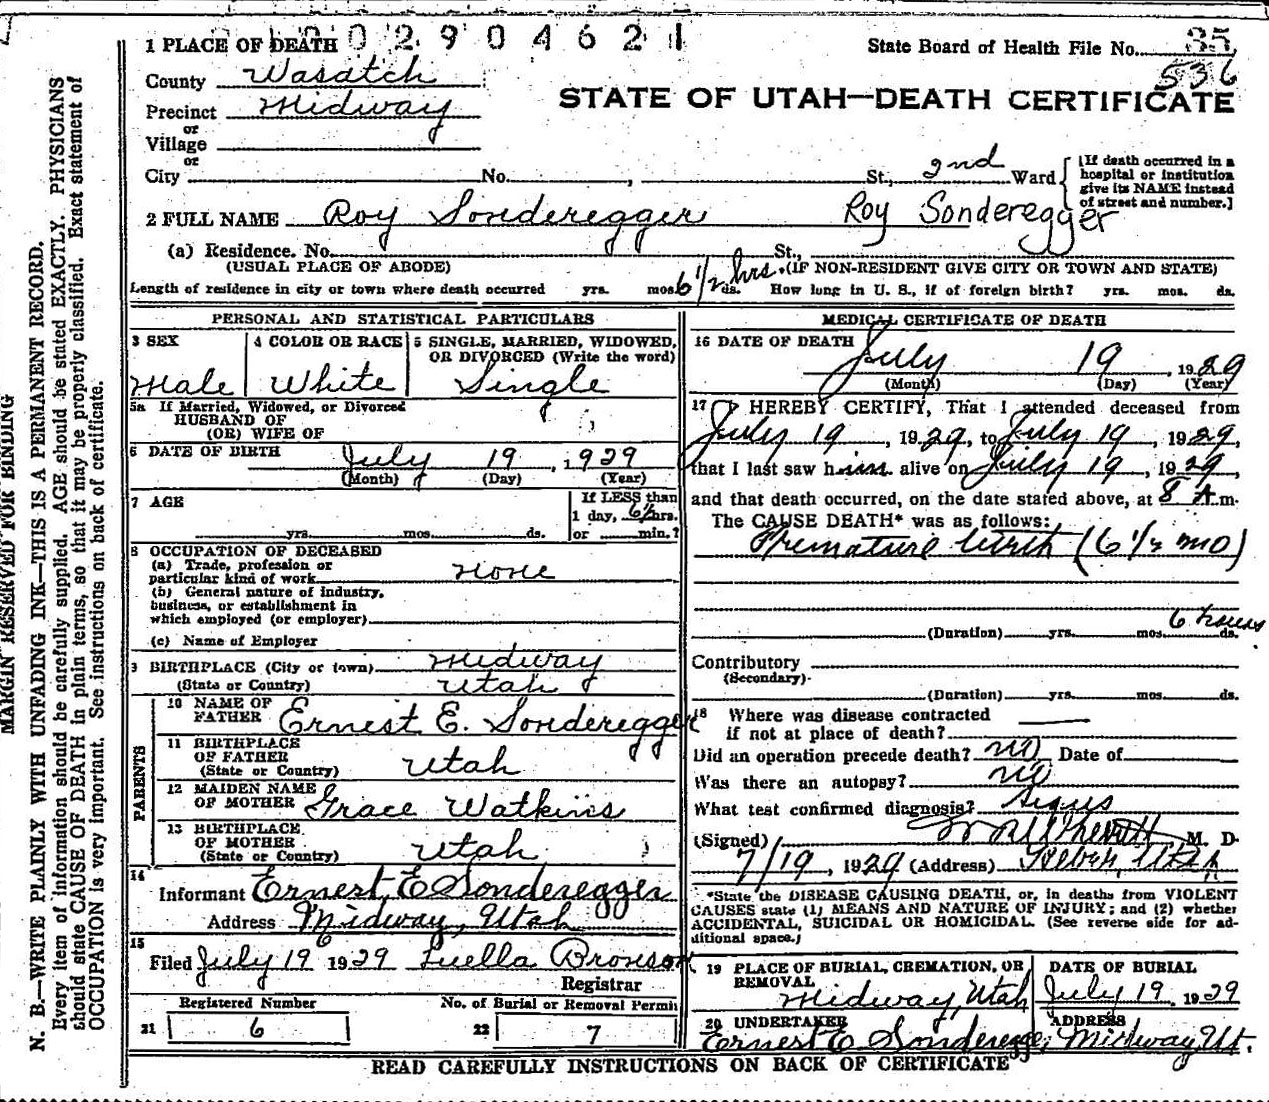 0 0 2 9 0 4 6 2 1
1 PLACE OF DEATH
State Board of Health File No. 35
536
County Wasatch
STATE OF UTAH—DEATH CERTIFICATE
Precinct Midway
or
Village
or
City No. , St., 2nd Ward
[If death occurred in a
hospital or institution
give its NAME instead
of street and number.]
2 FULL NAME Roy Sonderegger Roy Sonderegger
(a) Residence. No. St.,
(USUAL PLACE OF ABODE) (IF NON-RESIDENT GIVE CITY OR TOWN AND STATE)
Length of residence in city or town where death occurred yrs. mos. 6 1/2 hrs. ds. How long in U. S., if of foreign birth? yrs. mos. ds.
PERSONAL AND STATISTICAL PARTICULARS
3 SEX
Male
4 COLOR OR RACE
White
5 SINGLE, MARRIED, WIDOWED,
OR DIVORCED (Write the word)
Single
5a If Married, Widowed, or Divorced
HUSBAND OF
(OR) WIFE OF
6 DATE OF BIRTH July 19, 1929
(Month) (Day) (Year)
7 AGE
yrs. mos. ds.
If LESS than
1 day, 6½ hrs.
or min.?
8 OCCUPATION OF DECEASED
(a) Trade, profession or
particular kind of work None
(b) General nature of industry,
business, or establishment in
which employed (or employer)
(c) Name of Employer
9 BIRTHPLACE (City or town) Midway
(State or Country) Utah
PARENTS
10 NAME OF
FATHER Ernest E. Sonderegger
11 BIRTHPLACE
OF FATHER
(State or Country) Utah
12 MAIDEN NAME
OF MOTHER Grace Watkins
13 BIRTHPLACE
OF MOTHER
(State or Country) Utah
14
Informant Ernest E Sonderegger
Address Midway, Utah
15
Filed July 19 1929 Luella Bronson
Registrar
Registered Number
21 6
No. of Burial or Removal Permit
22 7
MEDICAL CERTIFICATE OF DEATH
16 DATE OF DEATH
July 19, 1929
(Month) (Day) (Year)
17 I HEREBY CERTIFY, That I attended deceased from
July 19, 1929, to July 19, 1929,
that I last saw him alive on July 19, 1929,
and that death occurred, on the date stated above, at 8 A m.
The CAUSE DEATH* was as follows:
Premature birth (6 1/2 mo)
6 hours
(Duration) yrs. mos. ds.
Contributory
(Secondary)
(Duration) yrs. mos. ds.
18 Where was disease contracted
if not at place of death?
Did an operation precede death? no Date of
Was there an autopsy? no
What test confirmed diagnosis? Signs
(Signed) M. D.
7/19, 1929 (Address) Heber, Utah
*State the DISEASE CAUSING DEATH, or, in deaths from VIOLENT
CAUSES state (1) MEANS AND NATURE OF INJURY; and (2) whether
ACCIDENTAL, SUICIDAL OR HOMICIDAL. (See reverse side for ad-
ditional space.)
19 PLACE OF BURIAL, CREMATION, OR
REMOVAL
Midway, Utah
DATE OF BURIAL
July 19, 1929
20 UNDERTAKER
Ernest E Sonderegger,
ADDRESS
Midway, Ut.
READ CAREFULLY INSTRUCTIONS ON BACK OF CERTIFICATE
MARGIN RESERVED FOR BINDING
N. B.—WRITE PLAINLY WITH UNFADING INK—THIS IS A PERMANENT RECORD.
Every item of information should be carefully supplied. AGE should be stated EXACTLY. PHYSICIANS
should state CAUSE OF DEATH in plain terms, so that it may be properly classified. Exact statement of
OCCUPATION is very important. See instructions on back of certificate.